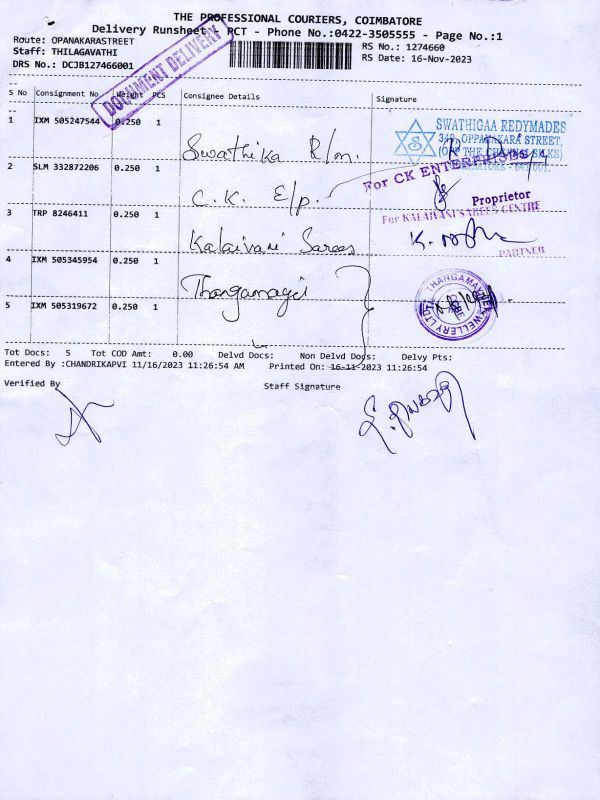 THE PROFESSIONAL COURIERS, COIMBATORE
Delivery Runsheet - PCT - Phone No.:0422-3505555 - Page No.:1
Route: OPANAKARASTREET
RS No.: 1274660
Staff: THILAGAVATHI
RS Date: 16-Nov-2023
DRS No.: DCJB127466001
DOCUMENT DELIVERY
S No Consignment No Weight PCS Consignee Details Signature
1 IXM 505247544 0.250 1
Swathika R/m.
SWATHIGAA REDYMADES
OPPANAKARA STREET,
(OPP THE CHENNAI SILKS)
2 SLM 332872206 0.250 1
C.K. E/p.
For CK ENTERPRISES
Proprietor
3 TRP 8246411 0.250 1
Kalaivani Sarees
For KALAIVANI SAREES CENTRE
PARTNER
4 IXM 505345954 0.250 1
Thangamayil
THANGAMAYIL JEWELLERY LTD
5 IXM 505319672 0.250 1
Tot Docs: 5 Tot COD Amt: 0.00 Delvd Docs: Non Delvd Docs: Delvy Pts:
Entered By :CHANDRIKAPVI 11/16/2023 11:26:54 AM Printed On: 16-11-2023 11:26:54
Verified By Staff Signature